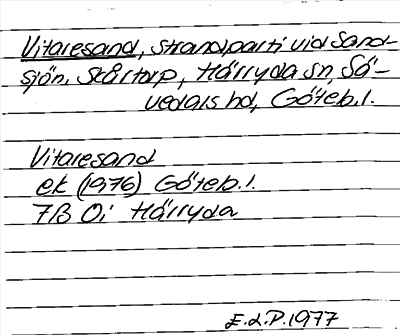 Vitaresand, strandparti vid Sand-
sjön, Skårtorp, Härryda sn, Sä-
vedals hd, Göteb.l.
Vitaresand
ek (1976) Göteb.l.
7B 0i Härryda
E.L.P. 1977